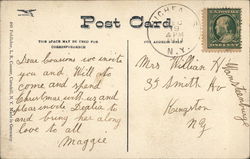 Post Card
THIS SPACE MAY BE USED FOR
CORRESPONDENCE
THE ADDRESS ONLY
Dear Cousins we invite
you and Will to
come and spend
Christmas with us and
please invite Delia to
and bring her along
love to all
Maggie
Mrs William H
35 Smith Av
Kingston
NY
4 PM
N.Y.